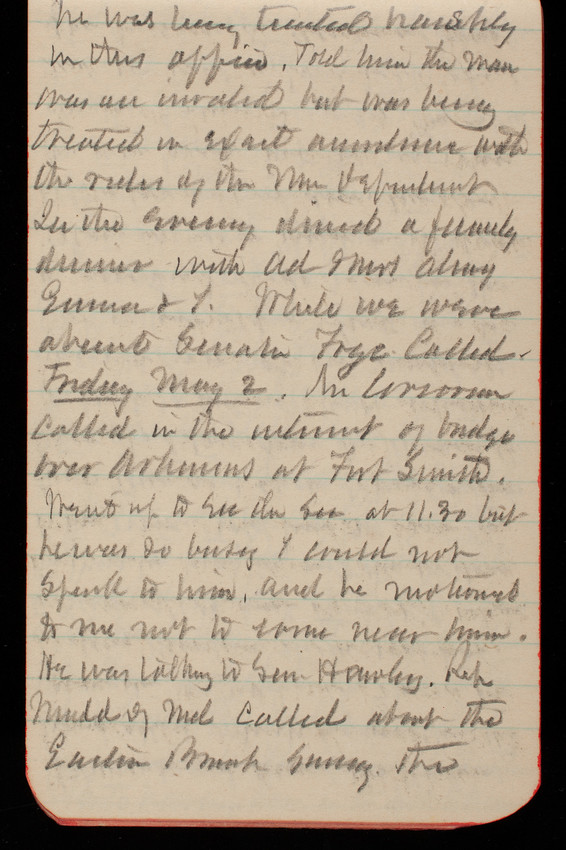 he was being treated harshly
in this office. Told him the man
was an invalid but was being
treated in exact accordance with
the rules of the War Department
In the evening dined a family
dinner with Col & Mrs
Emma & I. While we were
absent Senator Frye Called.
Friday May 2. Mr Corcoran
called in the interest of bridge
over Arkansas at Fort Smith.
Went up to See the Sec at 11.30 but
he was so busy I could not
Speak to him, and he motioned
to me not to come near him.
He was talking to Sen Hawley. Rep
Mudd of Md called about the
Eastern Branch Survey. The